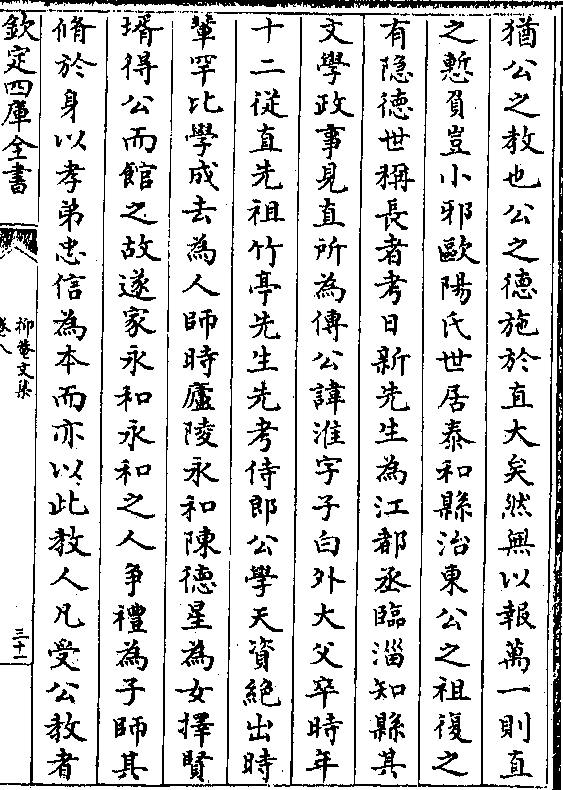 猶公之教也公之德施於直大矣然無以報萬一則直
之慙負豈小邪歐陽氏世居泰和縣治東公之祖復之
有隐德世稱長者考日新先生為江都丞臨淄知縣其
文學政事見直所為傳公諱淮字子白外大父卒時年
十二從直先祖竹亭先生先考侍郎公學天資絶出時
輩罕比學成去為人師時廬陵永和陳德星為女擇賢
壻得公而館之故遂家永和永和之人争禮為子師其
脩於身以孝弟忠信為本而亦以此教人凡受公教者
欽定四庫全書
抑菴文集
卷八
三十一